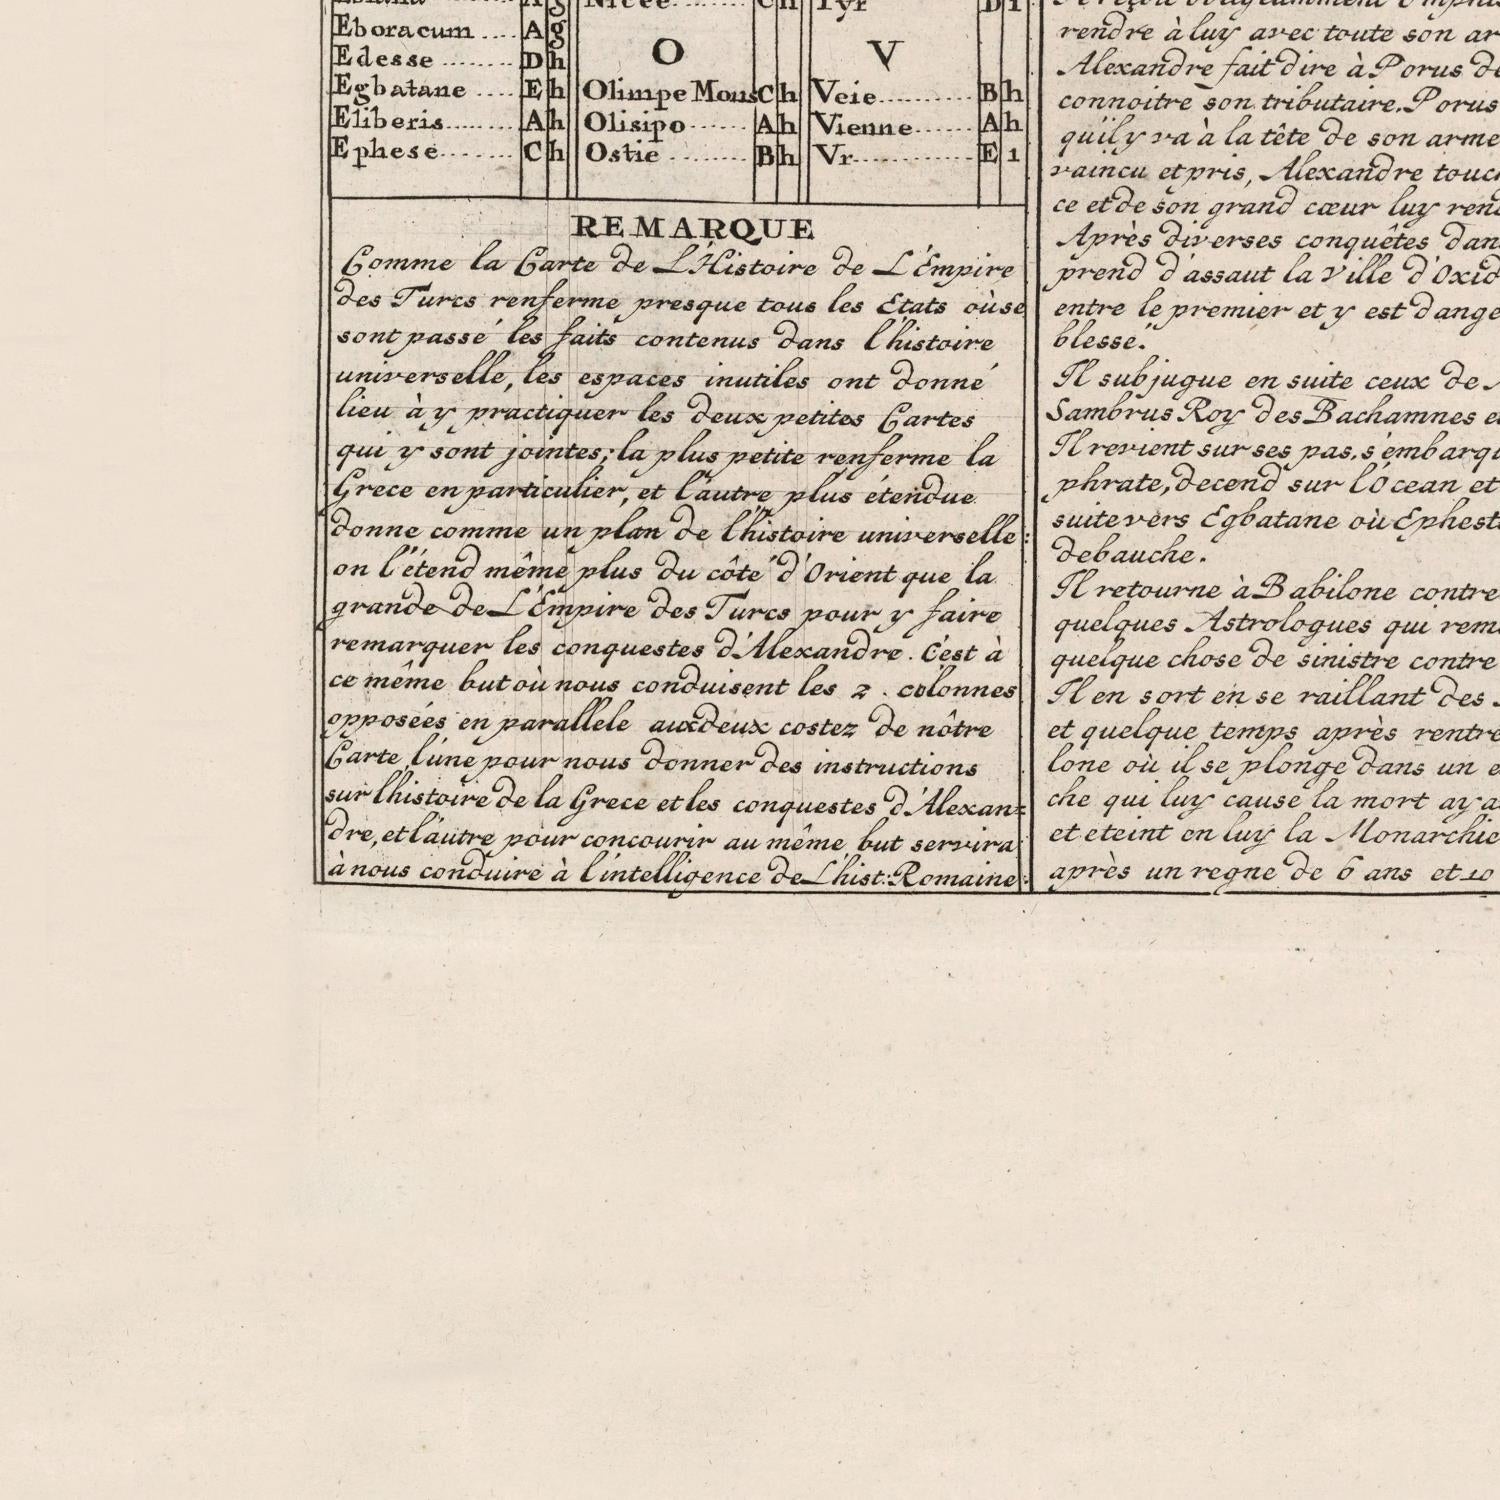 Eboracum .... A g
Edesse ........ D h
Egbatane .... E h
Eliberis ....... A h
Ephese ........ C h
Nicée ....... C h
O
Olimpe Mons C h
Olisipo ...... A h
Ostie ........ B h
Tyr D i
V
Veie .......... B h
Vienne ....... A h
Vr ............. E 1
REMARQUE
Comme la Carte de L'Histoire de L'Empire
des Turcs renferme presque tous les Etats où se
sont passé les faits contenus dans l'histoire
universelle, les espaces inutiles ont donné
lieu à y practiquer les deux petites Cartes
qui y sont jointes; la plus petite renferme la
Grece en particulier, et l'autre plus étendue
donne comme un plan de l'histoire universelle:
on l'étend même plus du côté d'Orient que la
grande de L'Empire des Turcs pour y faire
remarquer les conquestes d'Alexandre. C'est à
ce même but où nous conduisent les 2. colonnes
opposées en parallele aux deux costez de nôtre
Carte l'une pour nous donner des instructions
sur lhistoire de la Grece et les conquestes d'Alexan=
dre, et l'autre pour concourir au même but servira
à nous conduire à l'intelligence de L'hist: Romaine:
rendre à luy avec toute son ar
Alexandre fait dire à Porus de
connoitre son tributaire. Porus
quil y va à la tête de son arme
vaincu et pris, Alexandre touch
ce et de son grand cœur luy rend
Après diverses conquêtes dan
prend d'assaut la Ville d'Oxid
entre le premier et y est dange
blessé.
Il subjugue en suite ceux de
Sambrus Roy des Bachamnes e
Il revient sur ses pas, s'embarqu
phrate, decend sur l'Ocean et
suite vers Egbatane où Ephest
debauche.
Il retourne à Babilone contre
quelques Astrologues qui rem
quelque chose de sinistre contre
Il en sort en se raillant des
et quelque temps après rentre
lone où il se plonge dans un e
che qui luy cause la mort aya
et eteint en luy la Monarchie
après un regne de 6 ans et 10